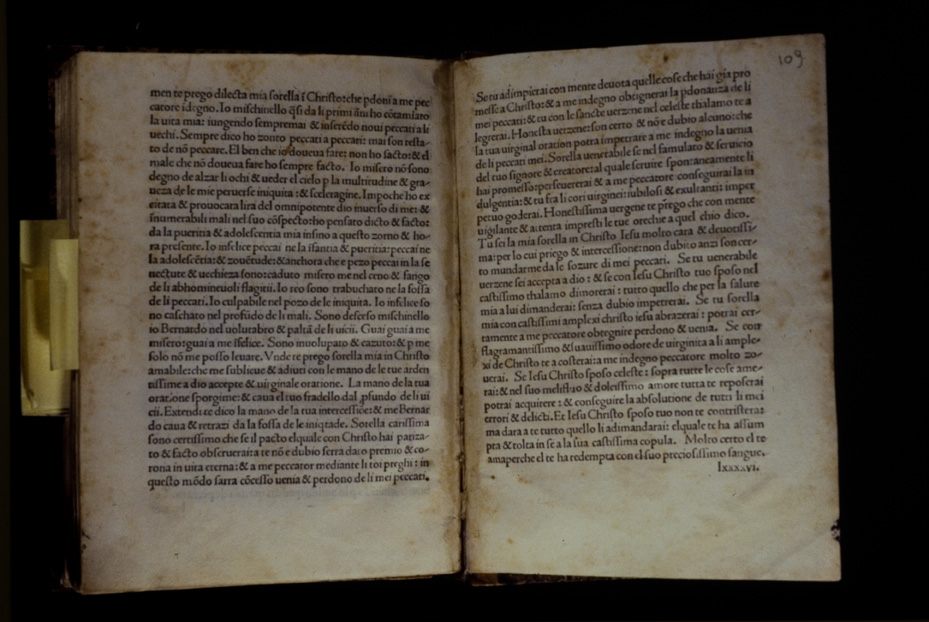 men te prego dilecta mia sorella ī Christo: che pdoni a me pec
catore īdegno. Io mischinello q̄si da li primi āni ho cōtamīato
la uita mia: iungendo sempremai & inserēdo noui peccati a li
uechi. Sempre dico ho zonto peccati a peccati: mai son resta-
to de nō peccare. El ben che io doueua fare: non ho facto: & el
male che nō doueua fare ho sempre facto. Io misero nō sono
degno de alzar li ochi & ueder el cielo p la multitudine & gra-
ueza de le mie peruerse iniquita: & sceleragine. Impoche ho ex
citata & prouocata lira del omnipotente dio inuerso di me: &
īnumerabili mali nel suo cōspecto: ho pensato dicto & facto:
da la pueritia & adolescentia mia insino a questo zorno & ho-
ra presente. Io infelice peccai ne la ifantia & pueritia: peccai ne
la adolescētia: & zouētude: & anchora che e pezo peccai in la se
nectute & uechieza sono: caduto misero me nel ceno & fango
de li abhomineuoli flagitii. Io reo sono trabuchato ne la fossa
de li peccati. Io culpabile nel pozo de le iniquita. Io infelice so
no caschato nel profūdo de li mali. Sono deserso mischinello
io Bernardo nel uolutabro & paltā de li uicii. Guai guai a me
misero: guai a me ifelice. Sono inuoluputo & cazuto: & p me
solo nō me posso leuare. Vnde te prego sorella mia in Christo
amabile: che me sublieue & adiuti con le mano de le tue arden
tissime a dio accepte & uirginale oratione. La mano de la tua
oratione sporgime: & caua el tuo fradello dal ,psundo de li ui
cii. Extendi te dico la mano de la tua intercessiōe: & me Bernar
do caua & retrazi da la fossa de le iniqtade. Sorella carissima
sono certissimo che se il pacto elquale con Christo hai patiza-
to & facto obseruerai: a te nō e dubio serra dato premio & co-
rona in uita eterna: & a me peccator mediante li toi preghi: in
questo mōdo sarra cōcesso uenia & perdono de li mei peccati.
109
Se tu adimpierai con mente deuota quelle cose che hai gia pro
messe a Christo: & a me indegno obtignerai la pdonanza de li
mei peccati: & tu con le sancte uerzene nel celeste thalamo te a
legrerai. Honesta uerzene: son certo & nō e dubio alcuno: che
la tua uirginal oration potra impetrare a me indegno la uenia
de li peccati mei. Sorella uenerabile se nel famulato & seruicio
del tuo signore & creatore: al quale seruire spontaneamente li
hai promesso: perseuererai & a me peccatore conseguirai la in
dulgentia: & tu fra li cori uirginei: iubilosi & exultanti: imper
petuo goderai. Honestissima uergene te prego che con mente
uigilante & attenta impresti le tue orechie a quel chio dico.
Tu sei la mia sorella in Christo Iesu molto cara & deuotissi-
ma: per lo cui priego & intercessione: non dubito anzi son cer-
to mundarme da le sozure di mei peccati. Se tu uenerabile
uerzene sei accepta a dio: & se con Iesu Christo tuo sposo nel
castissimo thalamo dimorerai: tutto quello che per la salute
mia a lui dimanderai: senza dubio impetrerai. Se tu sorella
mia con castissimi amplexi christo iesu abrazerai: potrai cer-
tamente a me peccatore obtegnire perdono & uenia. Se con
flagramantissimo & suauissimo odore de uirginita a li ample-
xi de Christo te a costerai: a me indegno peccatore molto zo-
uerai. Se Iesu Christo sposo celeste: sopra tutte le cose ame-
rai: & nel suo melifluo & dolcissimo amore tutta te reposerai
potrai acquirere: & conseguire la absolutione de tutti li mei
errori & delicti. Et Iesu Christo sposo tuo non te contristera:
ma dara a te tutto quello li adimandarai: elquale te ha assum
pta & tolta in se a la sua castissima copula. Molto certo el te
ama perche el te ha redempta con el suo preciosissimo sangue.
lxxxxvi.